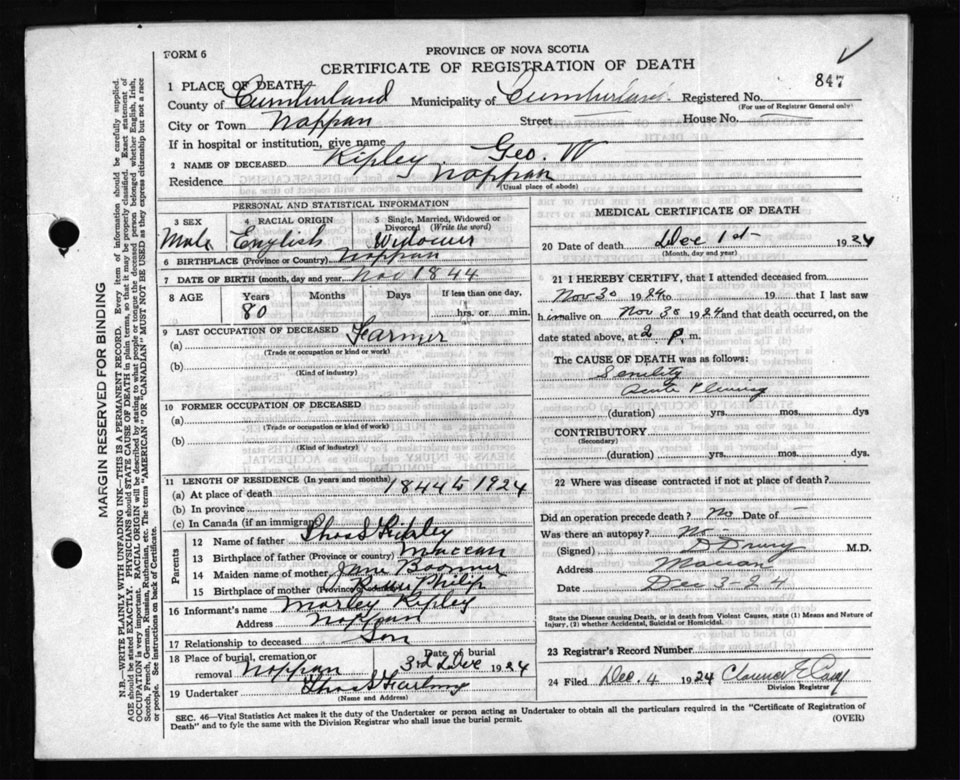 FORM 6
PROVINCE OF NOVA SCOTIA
CERTIFICATE OF REGISTRATION OF DEATH
847
1 PLACE OF DEATH
County of Cumberland Municipality of Cumberland Registered No.
(For use of Registrar General only)
City or Town Nappan Street House No.
If in hospital or institution, give name
2 NAME OF DECEASED Ripley Geo. W
Residence Nappan
(Usual place of abode)
PERSONAL AND STATISTICAL INFORMATION
3 SEX 4 RACIAL ORIGIN 5 Single, Married, Widowed or Divorced (Write the word)
Male English Widower
6 BIRTHPLACE (Province or Country) Nappan
7 DATE OF BIRTH (month, day and year) Nov 1844
8 AGE Years Months Days If less than one day,
80 hrs. or min.
9 LAST OCCUPATION OF DECEASED
(a) Farmer
(Trade or occupation or kind or work)
(b)
(Kind of industry)
10 FORMER OCCUPATION OF DECEASED
(a)
(Trade or occupation or kind of work)
(b)
(Kind of industry)
11 LENGTH OF RESIDENCE (In years and months)
(a) At place of death 1844 to 1924
(b) In province
(c) In Canada (if an immigrant)
Parents
12 Name of father Thos S Ripley
13 Birthplace of father (Province or country) Maccan
14 Maiden name of mother Jane Boomer
15 Birthplace of mother (Province or country) River Philip
16 Informant's name Morley Ripley
Address Nappan
17 Relationship to deceased Son
18 Place of burial, cremation or removal Nappan Date of burial 3rd Dec 1924
19 Undertaker Thos S
(Name and Address)
MEDICAL CERTIFICATE OF DEATH
20 Date of death Dec 1st 1924
(Month, day and year)
21 I HEREBY CERTIFY, that I attended deceased from
Nov 30 1924 to 19 that I last saw
him alive on Nov 30 1924 and that death occurred, on the
date stated above, at 2 p. m.
The CAUSE OF DEATH was as follows:
Senility
Acute Pleurisy
(duration) yrs. mos. dys
CONTRIBUTORY
(Secondary)
(duration) yrs. mos. dys.
22 Where was disease contracted if not at place of death?
Did an operation precede death? No Date of -
Was there an autopsy? No -
(Signed) D Drury M.D.
Address Maccan
Date Dec 3-24
State the Disease causing Death, or in death from Violent Causes, state (1) Means and Nature of Injury, (2) whether Accidental, Suicidal or Homicidal.
23 Registrar's Record Number
24 Filed Dec. 4 1924 Clarence E
Division Registrar
SEC. 46—Vital Statistics Act makes it the duty of the Undertaker or person acting as Undertaker to obtain all the particulars required in the "Certificate of Registration of
Death" and to fyle the same with the Division Registrar who shall issue the burial permit.
(OVER)
MARGIN RESERVED FOR BINDING
N.B.—WRITE PLAINLY WITH UNFADING INK—THIS IS A PERMANENT RECORD. Every item of information should be carefully supplied.
AGE should be stated EXACTLY. PHYSICIANS should STATE CAUSE OF DEATH in plain terms, so that it may be properly classified. Exact statement of
OCCUPATION is very important. RACIAL ORIGIN will be described by stating to what people or tongue the deceased person belonged whether English, Irish,
Scotch, French, German, Russian, Ruthenian, etc. The terms "AMERICAN" or "CANADIAN" MUST NOT BE USED as they express citizenship but not a race
or people. See instructions on back of Certificate.